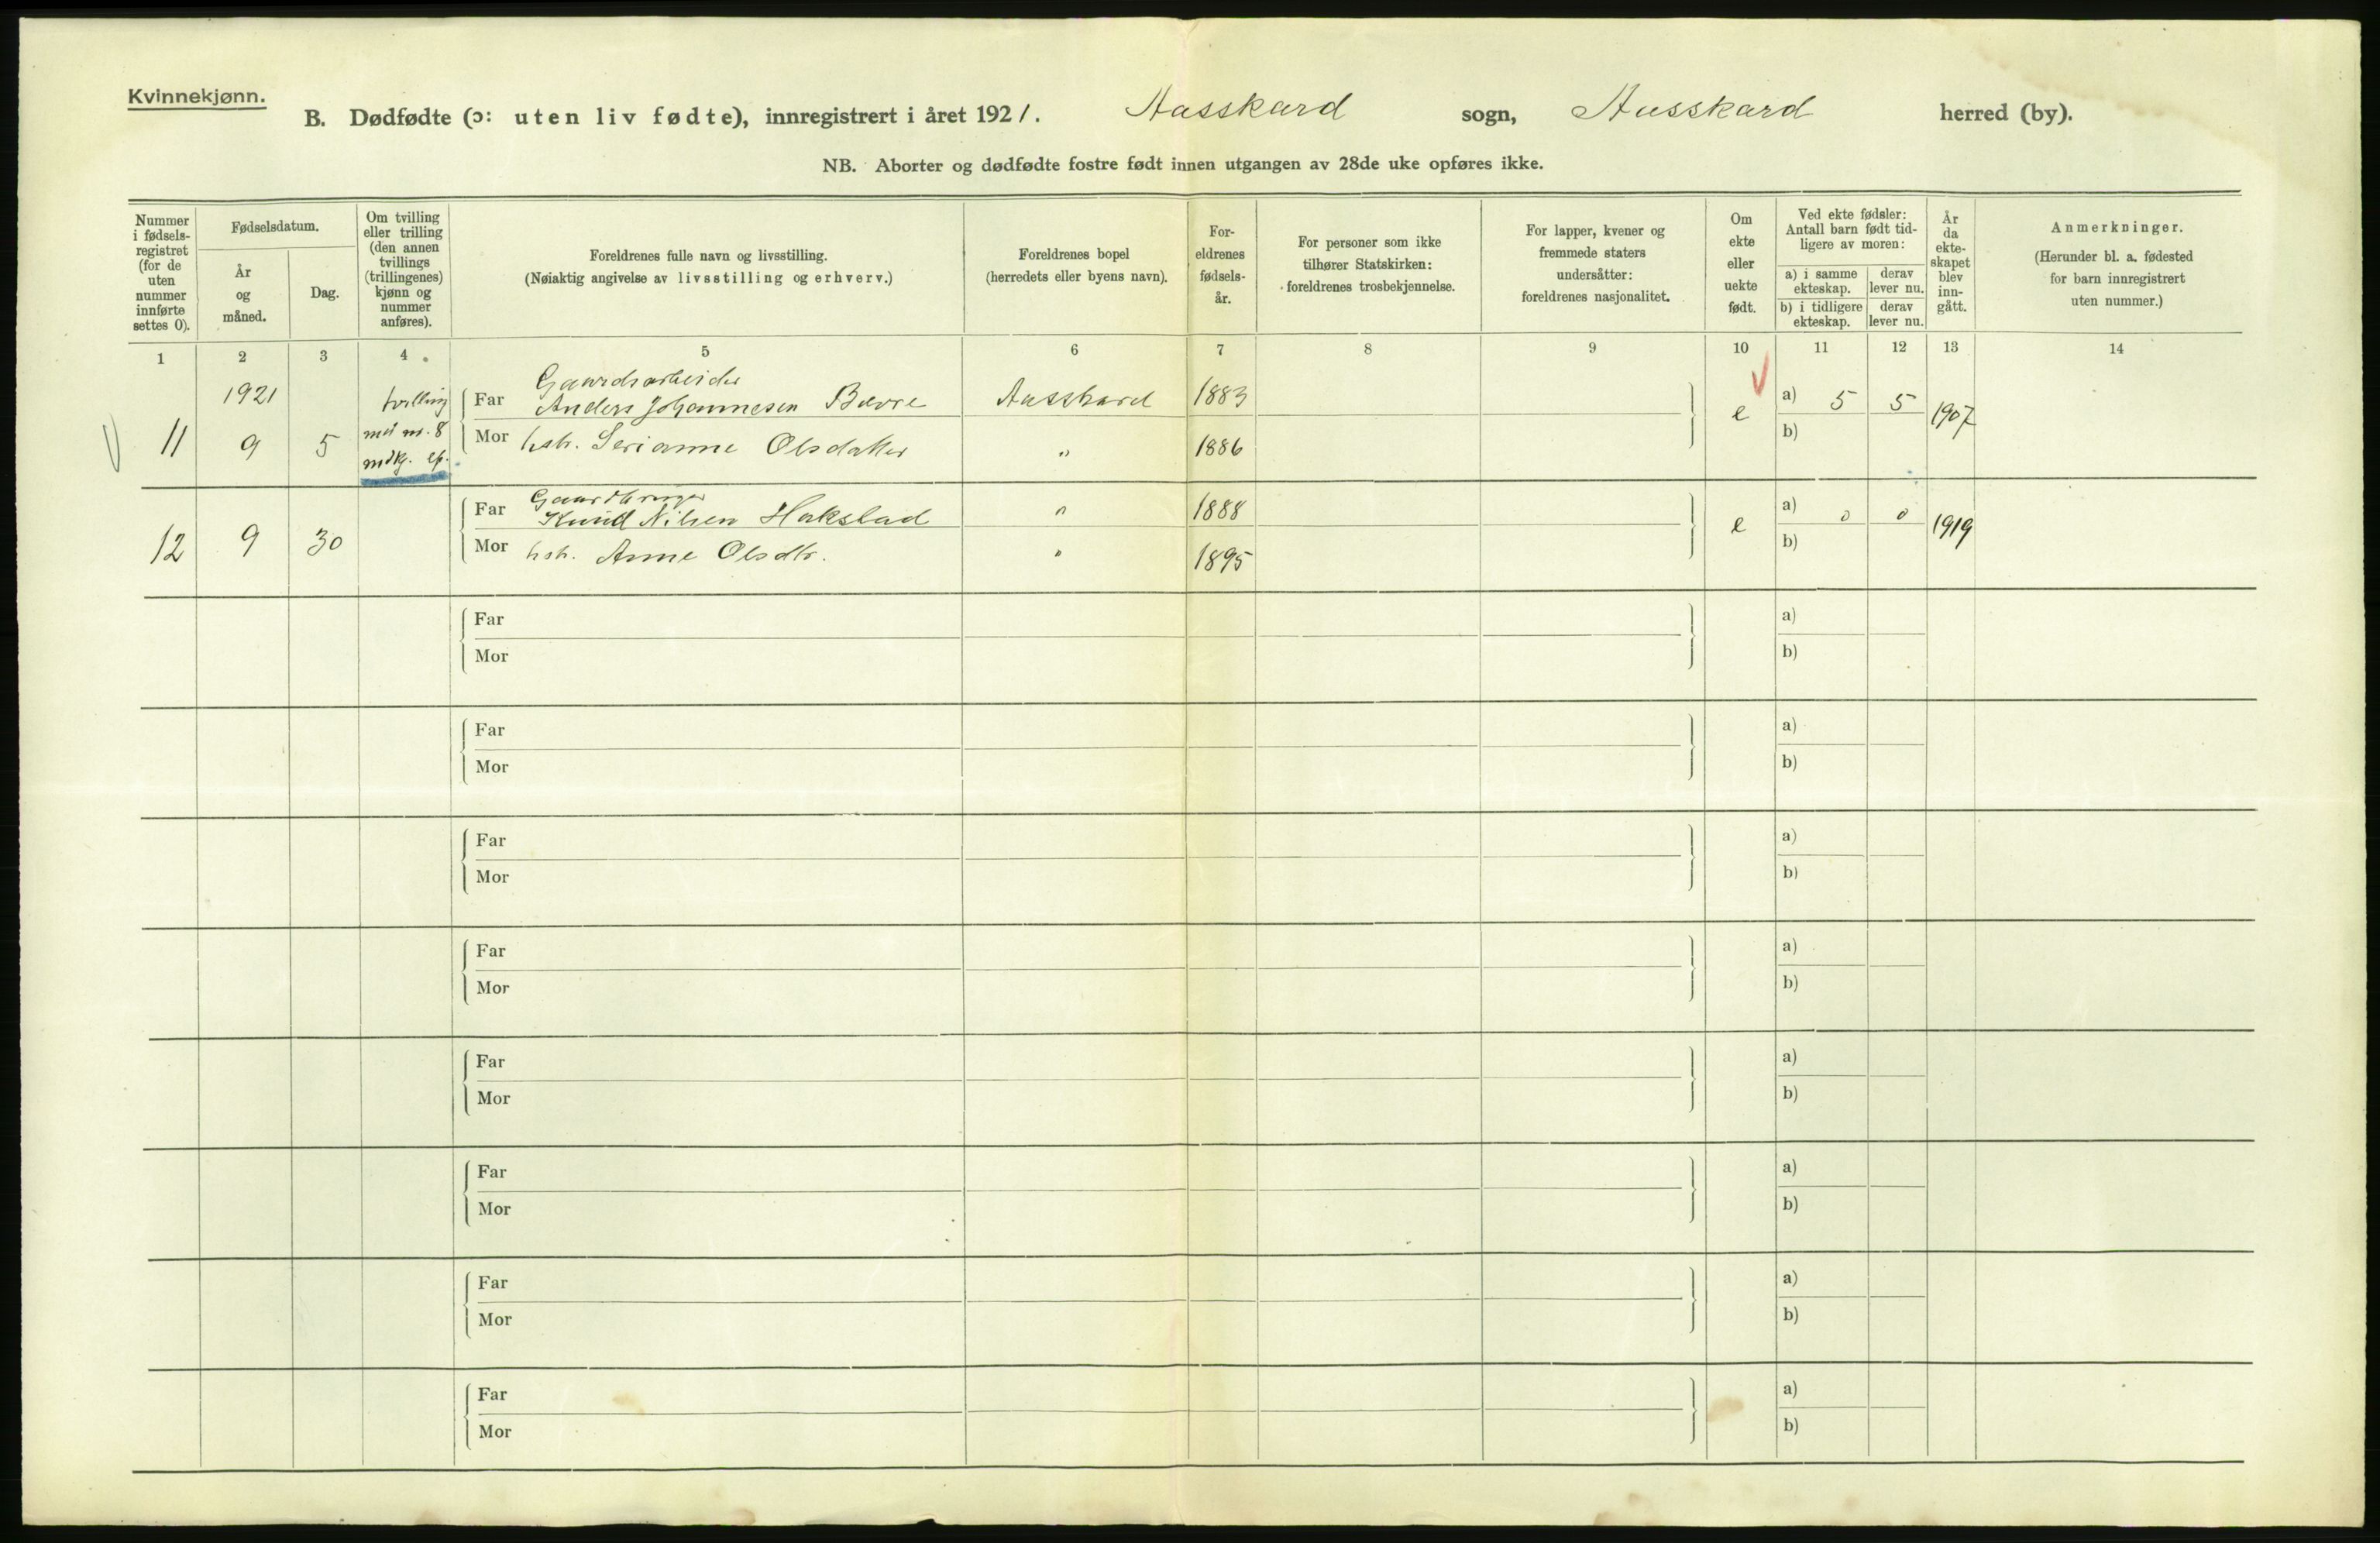 Kvinnekjønn.
B. Dødfødte (ɔ: uten liv fødte), innregistrert i året 1921. Aasskard sogn, Aasskard herred (by).
NB. Aborter og dødfødte fostre født innen utgangen av 28de uke opføres ikke.
Nummer
i fødsels-
registret
(for de
uten
nummer
innførte
settes 0).
Fødselsdatum.
År
og
måned.
Dag.
Om tvilling
eller trilling
(den annen
tvillings
(trillingenes)
kjønn og
nummer
anføres).
Foreldrenes fulle navn og livsstilling.
(Nøiaktig angivelse av livsstilling og erhverv.)
Foreldrenes bopel
(herredets eller byens navn).
For-
eldrenes
fødsels-
år.
For personer som ikke
tilhører Statskirken:
foreldrenes trosbekjennelse.
For lapper, kvener og
fremmede staters
undersåtter:
foreldrenes nasjonalitet.
Om
ekte
eller
uekte
født.
Ved ekte fødsler:
Antall barn født tid-
ligere av moren:
a) i samme
ekteskap.
derav
lever nu.
b) i tidligere
ekteskap.
derav
lever nu.
År
da
ekte-
skapet
blev
inn-
gått.
Anmerkninger.
(Herunder bl. a. fødested
for barn innregistrert
uten nummer.)
1 2 3 4 5 6 7 8 9 10 11 12 13 14
1921 tvilling Gaardsarbeider
Far Anders Johannesen Bævre Aasskard 1883 a) 5 5
11 9 5 med nr. 8 e 1907
mdkj. Mor hstr. Serianne Olsdatter " 1886 b)
Gaardbruger
Far Knud Nilsen Hakstad " 1888 a) 0 0
12 9 30 e 1919
Mor hstr. Anne Olsdtr. " 1895 b)
Far a)
Mor b)
Far a)
Mor b)
Far a)
Mor b)
Far a)
Mor b)
Far a)
Mor b)
Far a)
Mor b)
Far a)
Mor b)
Far a)
Mor b)